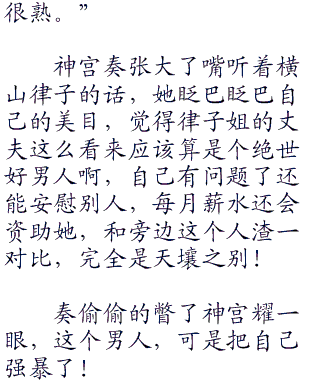 很熟。”
神宫奏张大了嘴听着横
山律子的话，她眨巴眨巴自
己的美目，觉得律子姐的丈
夫这么看来应该算是个绝世
好男人啊，自己有问题了还
能安慰别人，每月薪水还会
资助她，和旁边这个人渣一
对比，完全是天壤之别！
奏偷偷的瞥了神宫耀一
眼，这个男人，可是把自己
强暴了！